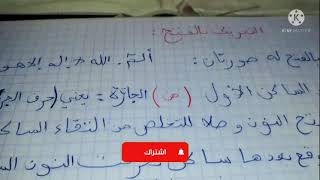 التحريك بالفتح :
بالفتح له صورتان : ألمّ . الله لا إله إلا هو
الساكن الأول (من) الجارّة = يعني (حرف الجر
فتح النون وصلا للتخلص من التقاء السا
وقع بعدها ساكن النون الس
اشتراك
KINEMASTER